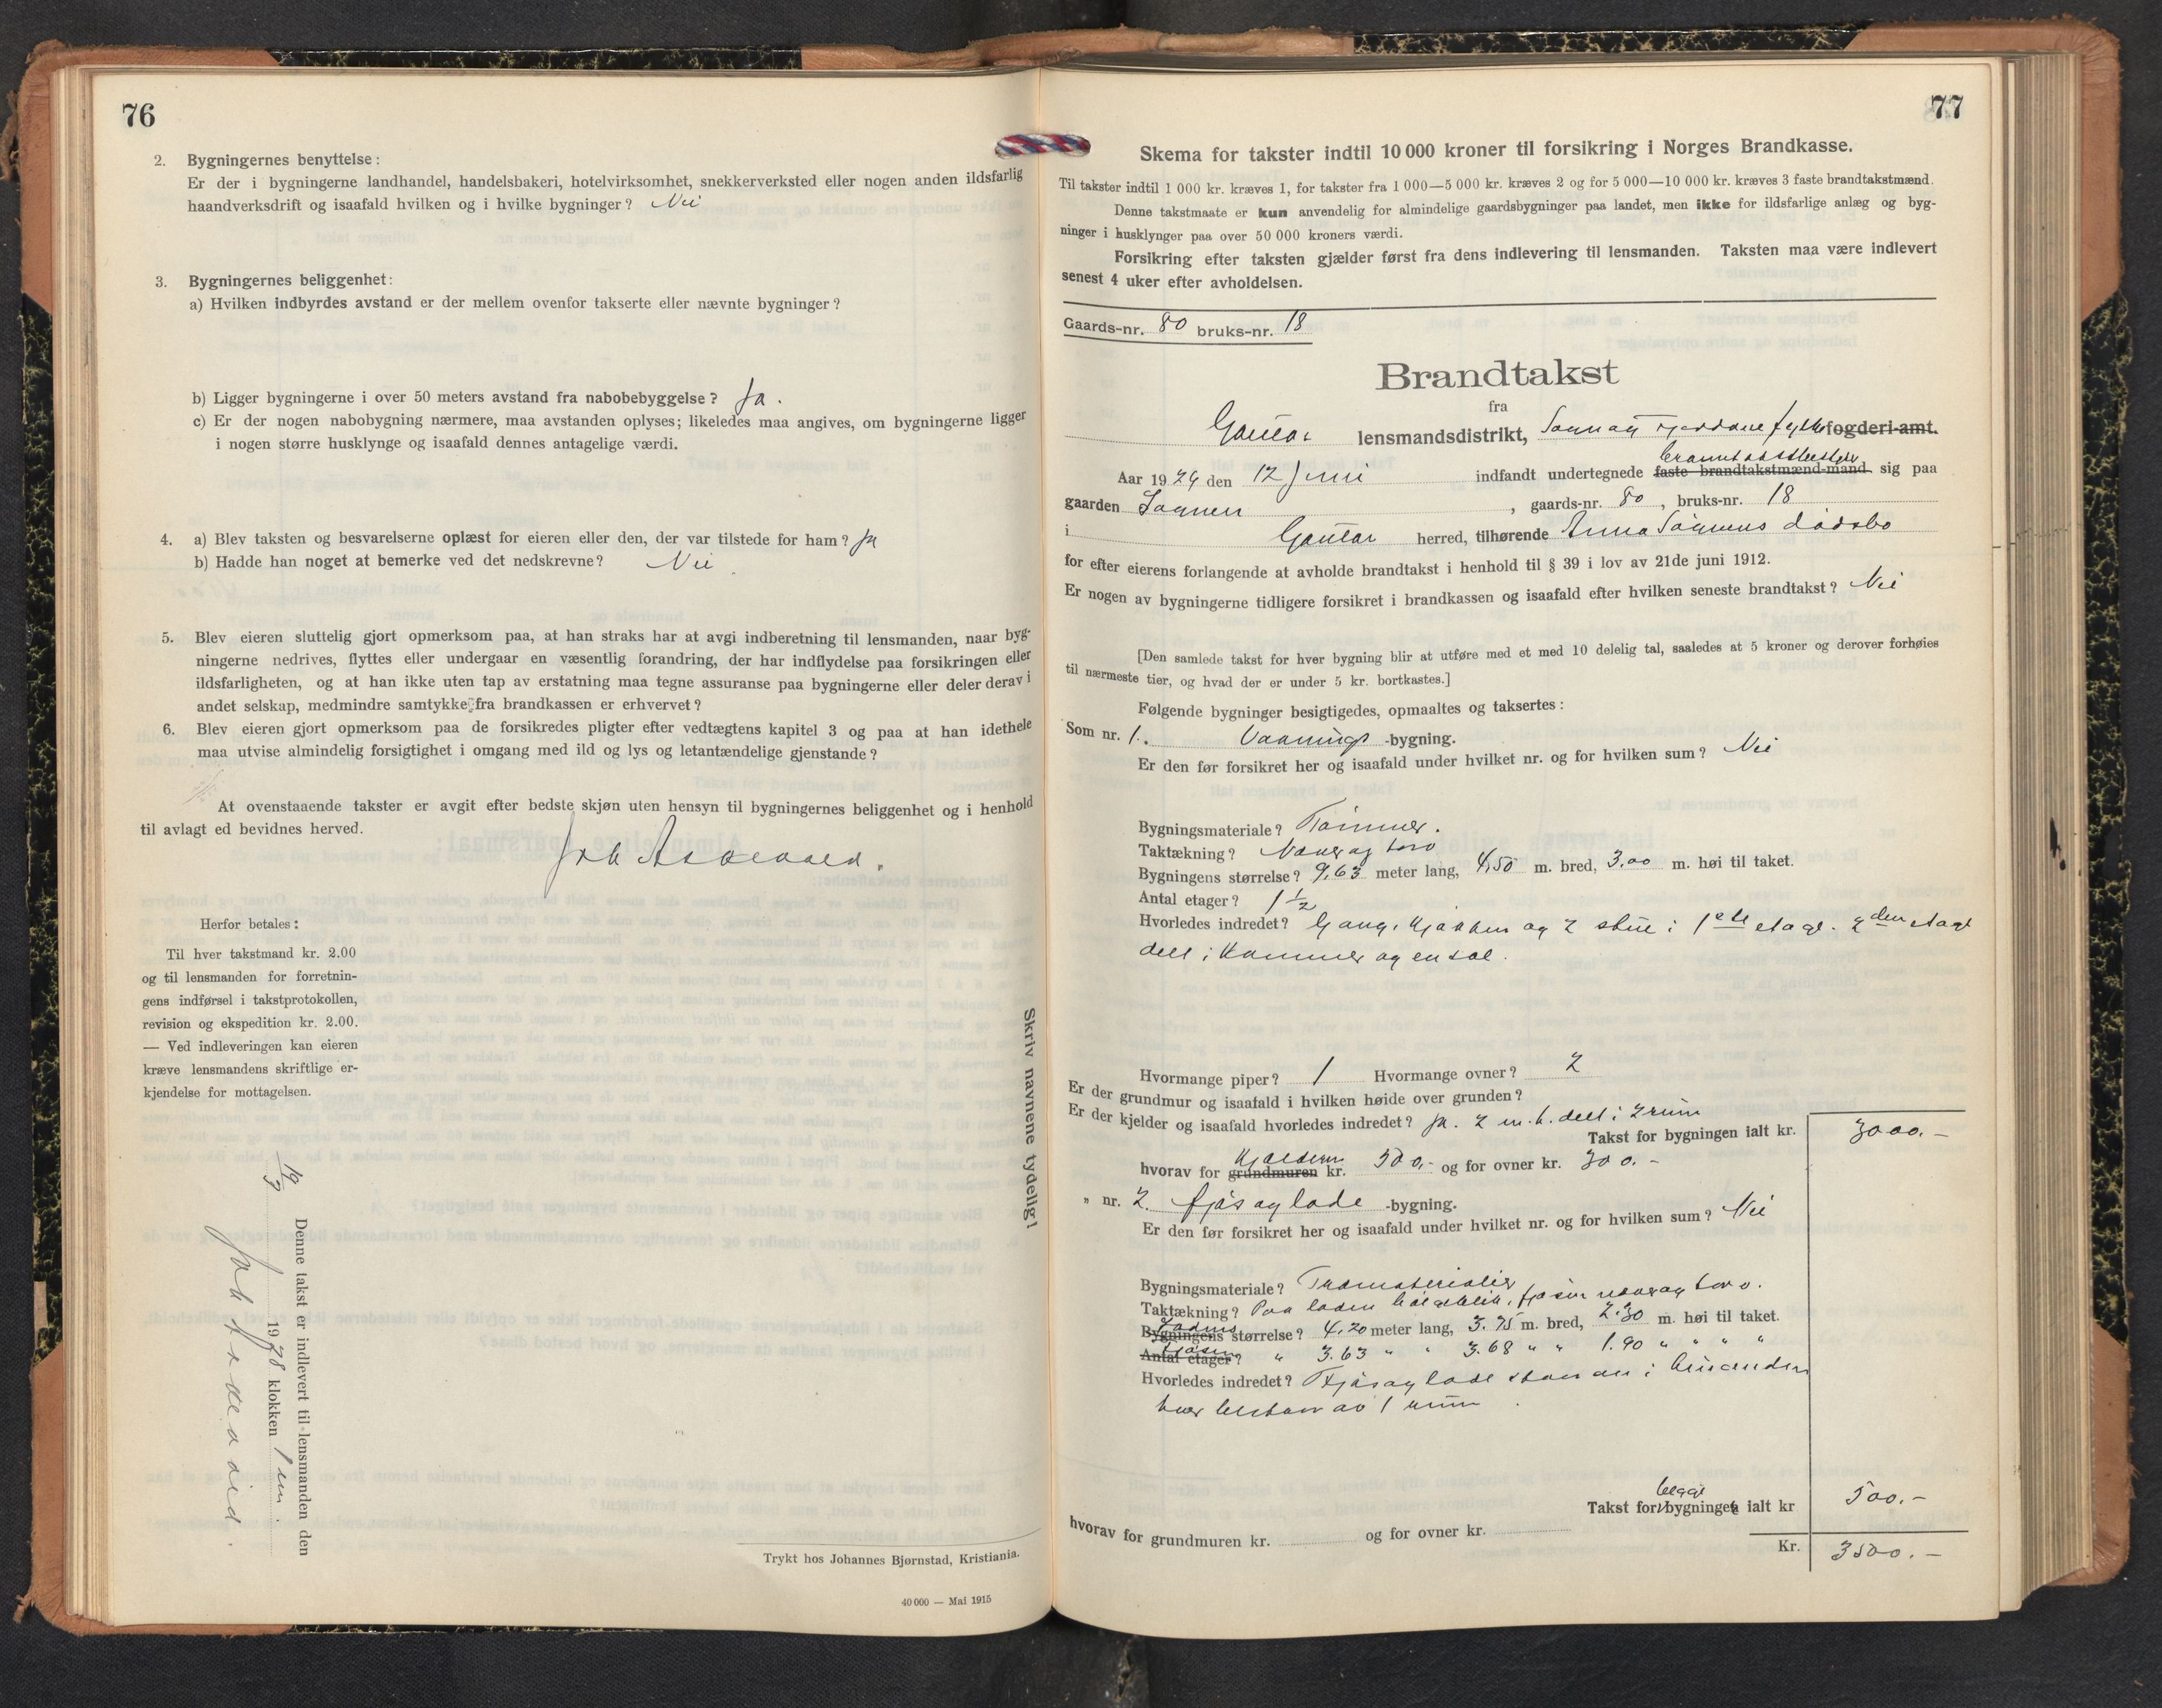 76
2. Bygningernes benyttelse:
Er der i bygningerne landhandel, handelsbakeri, hotelvirksomhet, snekkerverksted eller nogen anden ildsfarlig
haandverksdrift og isaafald hvilken og i hvilke bygninger? Nei
3. Bygningernes beliggenhet:
a) Hvilken indbyrdes avstand er der mellem ovenfor takserte eller nævnte bygninger?
b) Ligger bygningerne i over 50 meters avstand fra nabobebyggelse? Ja.
c) Er der nogen nabobygning nærmere, maa avstanden oplyses; likeledes maa angives, om bygningerne ligger
i nogen større husklynge og isaafald dennes antagelige værdi.
4. a) Blev taksten og besvarelserne oplæst for eieren eller den, der var tilstede for ham? Ja
b) Hadde han noget at bemerke ved det nedskrevne? Nei
5. Blev eieren sluttelig gjort opmerksom paa, at han straks har at avgi indberetning til lensmanden, naar byg-
ningerne nedrives, flyttes eller undergaar en væsentlig forandring, der har indflydelse paa forsikringen eller
ildsfarligheten, og at han ikke uten tap av erstatning maa tegne assuranse paa bygningerne eller deler derav i
andet selskap, medmindre samtykke fra brandkassen er erhvervet?
6. Blev eieren gjort opmerksom paa de forsikredes pligter efter vedtægtens kapitel 3 og paa at han idethele
maa utvise almindelig forsigtighet i omgang med ild og lys og letantændelige gjenstande?
At ovenstaaende takster er avgit efter bedste skjøn uten hensyn til bygningernes beliggenhet og i henhold
til avlagt ed bevidnes herved.
Herfor betales:
Til hver takstmand kr. 2.00
og til lensmanden for forretnin-
gens indførsel i takstprotokollen,
revision og ekspedition kr. 2.00.
— Ved indleveringen kan eieren
kræve lensmandens skriftlige er-
kjendelse for mottagelsen.
Skriv navnene tydelig!
Denne takst er indlevert til lensmanden den
19/3 1928 klokken 1 em.
Trykt hos Johannes Bjørnstad, Kristiania.
40 000 — Mai 1915
77
Skema for takster indtil 10 000 kroner til forsikring i Norges Brandkasse.
Til takster indtil 1 000 kr. kræves 1, for takster fra 1 000—5 000 kr. kræves 2 og for 5 000—10 000 kr. kræves 3 faste brandtakstmænd.
Denne takstmaate er kun anvendelig for almindelige gaardsbygninger paa landet, men ikke for ildsfarlige anlæg og byg-
ninger i husklynger paa over 50 000 kroners værdi.
Forsikring efter taksten gjælder først fra dens indlevering til lensmanden. Taksten maa være indlevert
senest 4 uker efter avholdelsen.
Gaards-nr. 80 bruks-nr. 18
Brandtakst
fra
Gaular lensmandsdistrikt, Sogn og Fjordane fylke fogderi-amt.
branntakstbestyrer
Aar 1924 den 12 Juni indfandt undertegnede faste brandtakstmænd-mand sig paa
gaarden , gaards-nr. 80, bruks-nr. 18
i Gaular herred, tilhørende Anna dødsbo
for efter eierens forlangende at avholde brandtakst i henhold til § 39 i lov av 21de juni 1912.
Er nogen av bygningerne tidligere forsikret i brandkassen og isaafald efter hvilken seneste brandtakst? Nei
[Den samlede takst for hver bygning blir at utføre med et med 10 delelig tal, saaledes at 5 kroner og derover forhøies
til nærmeste tier, og hvad der er under 5 kr. bortkastes.]
Følgende bygninger besigtigedes, opmaaltes og taksertes:
Som nr. 1. Vaanings-bygning.
Er den før forsikret her og isaafald under hvilket nr. og for hvilken sum? Nei
Bygningsmateriale? Tømmer.
Taktækning? Næver og torv
Bygningens størrelse? 9,63 meter lang, 4,50 m. bred, 3.00 m. høi til taket.
Antal etager? 1 1/2
Hvorledes indredet? Gang, kjøkken og 2 stue i 1ste etage. 2den etage
delt i kammer og en sal.
Hvormange piper? 1 Hvormange ovner? 2
Er der grundmur og isaafald i hvilken høide over grunden?
Er der kjelder og isaafald hvorledes indredet? Ja. 2 m. h. delt i 2 rum
Takst for bygningen ialt kr. 3000.-
Kjælderen
hvorav for grundmuren kr. 500.- og for ovner kr. 300.-
" nr. 2 fjøs og lade-bygning.
Er den før forsikret her og isaafald under hvilket nr. og for hvilken sum? Nei
Bygningsmateriale? Træmaterialer
Taktækning? Paa laden bølgeblik, fjøsen næver og torv.
Ladens
Bygningens størrelse? 4.20 meter lang, 3.75 m. bred, 2.30 m. høi til taket.
Fjøsen
Antal etager? " 3.63 " " 3.68 " " 1.90 " " " "
Hvorledes indredet? Fjøs og lade staar i hinanden
hver bestaar av 1 rum
begge
Takst for bygninger ialt kr 500.-
hvorav for grundmuren kr. og for ovner kr.
Kr. 3500.-